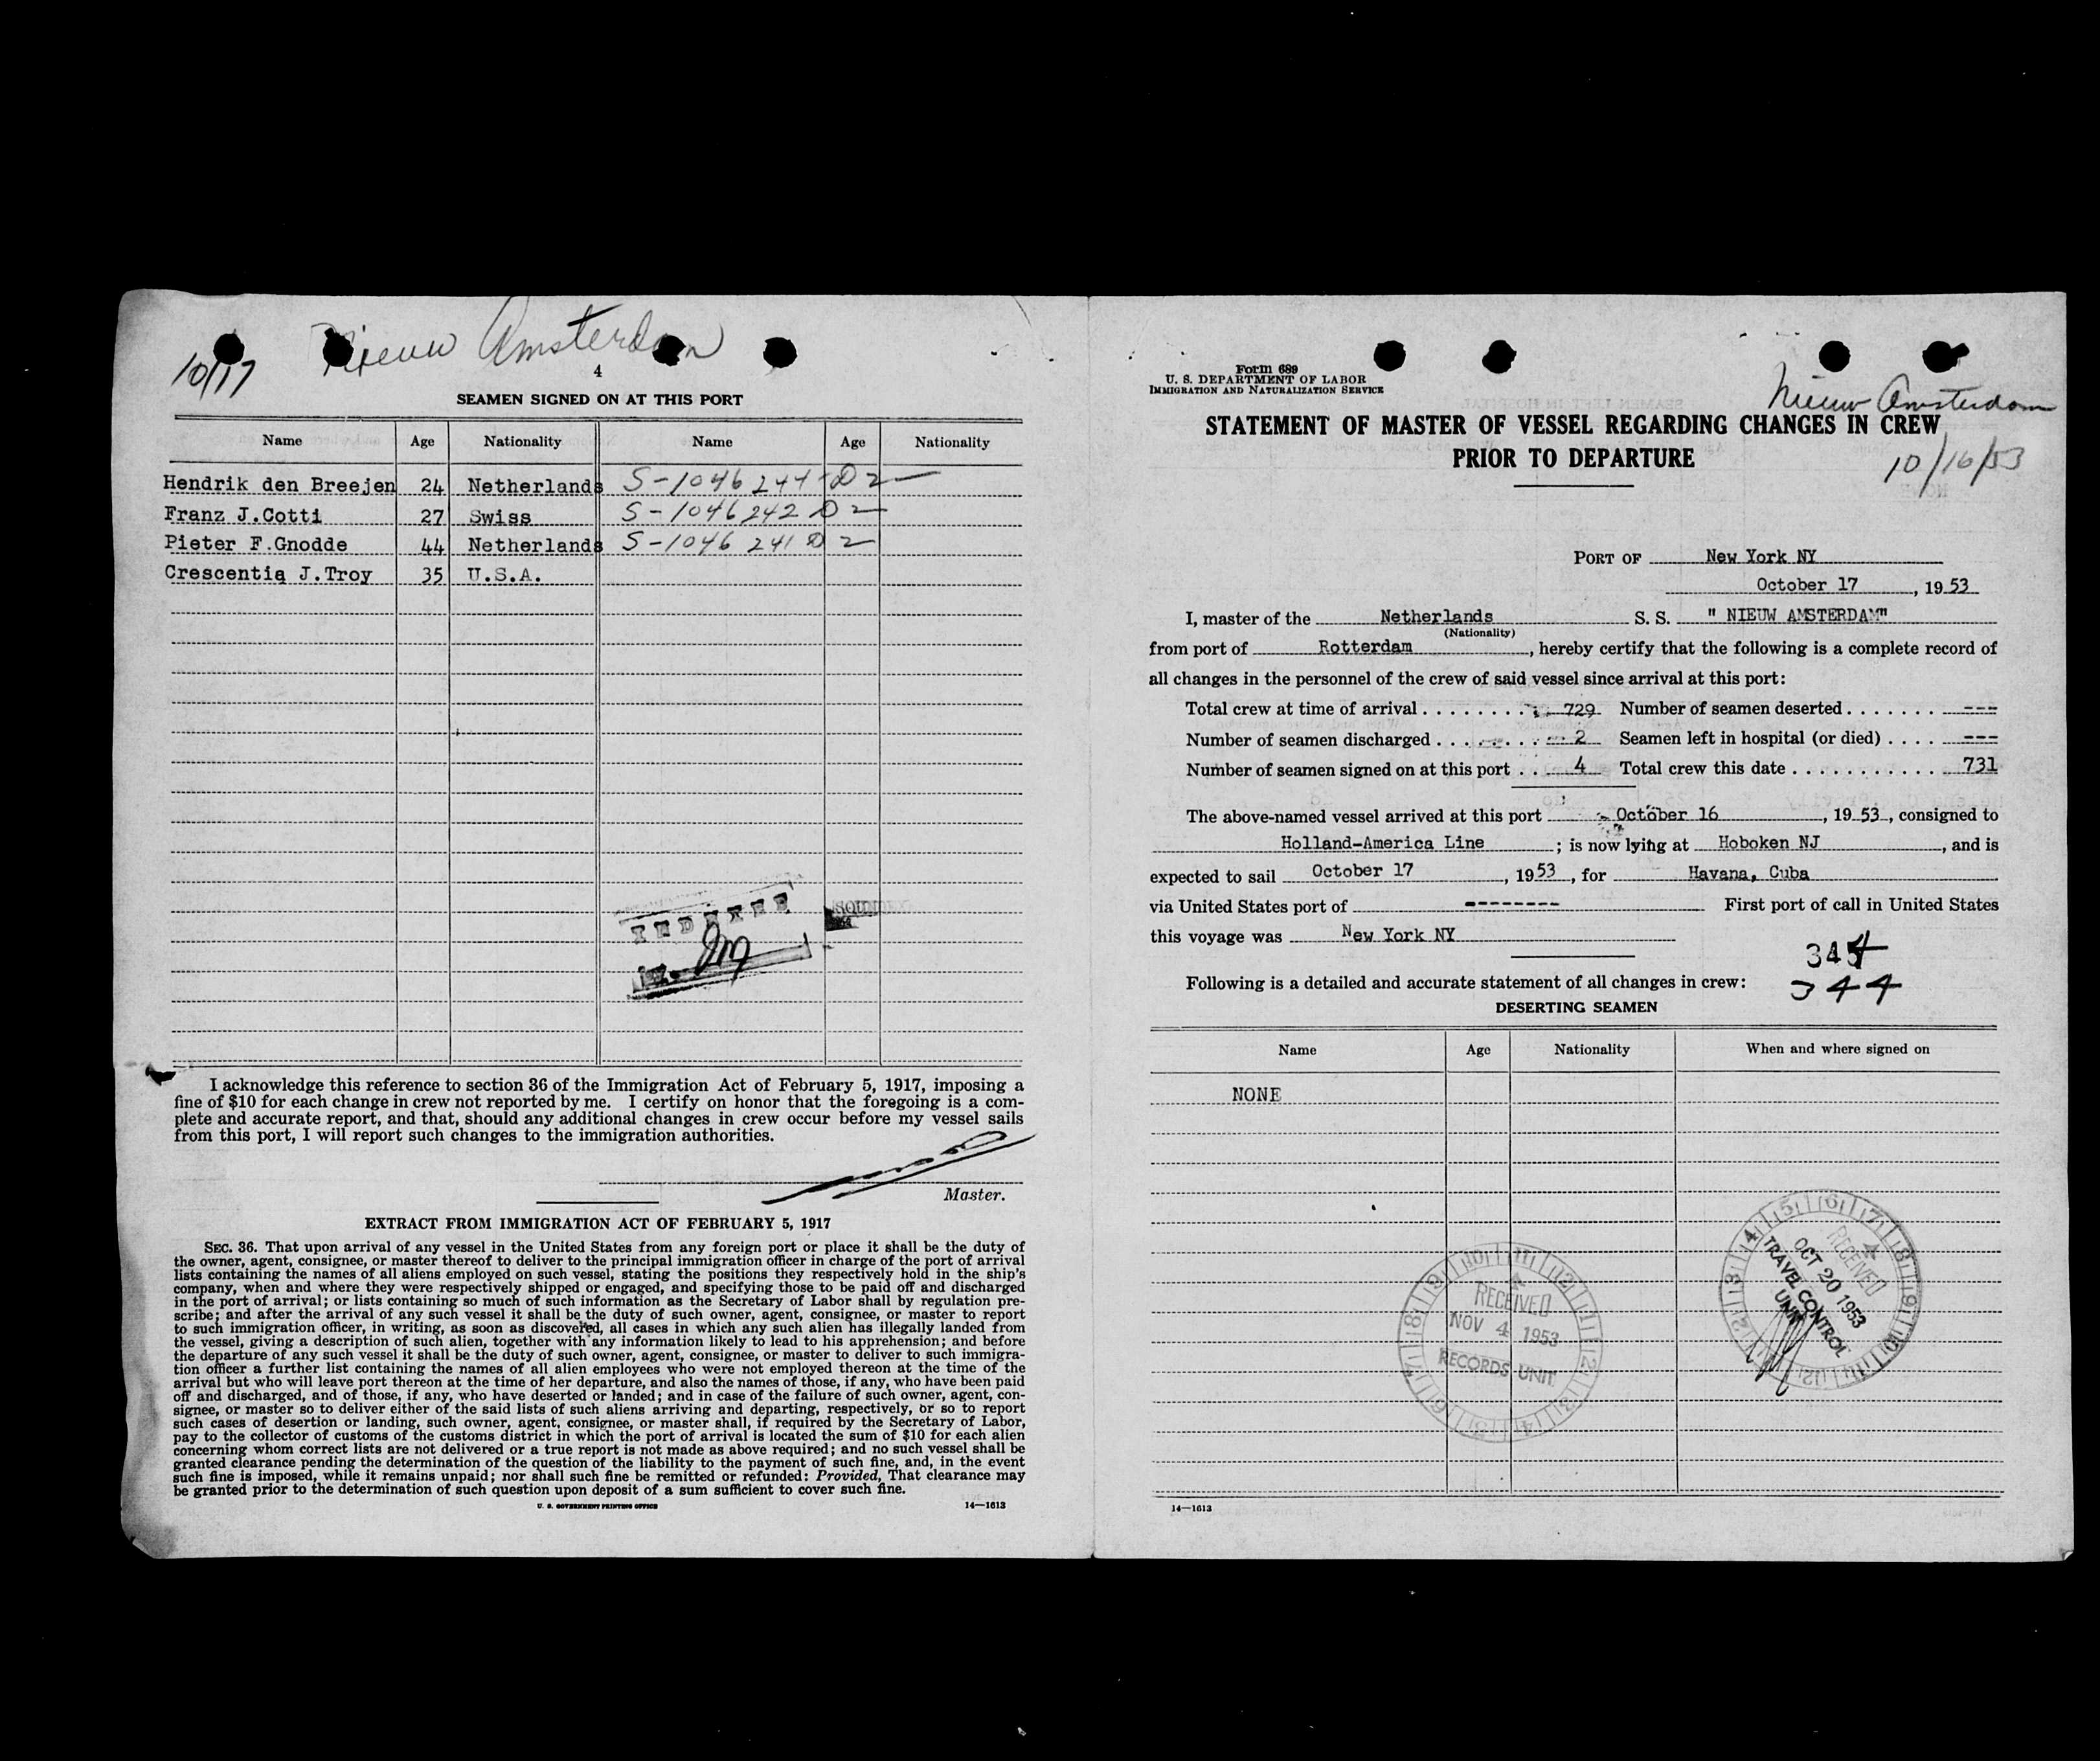 10/17
Nieuw Amsterdam
4
SEAMEN SIGNED ON AT THIS PORT
Name Age Nationality Name Age Nationality
Hendrik den Breejen 24 Netherlands S-1046244 D2
Franz J.Cotti 27 Swiss S-1046242 D2
Pieter F.Gnodde 44 Netherlands S-1046 241 D2
Crescentia J.Troy 35 U.S.A.
INDEXED
I acknowledge this reference to section 36 of the Immigration Act of February 5, 1917, imposing a
fine of $10 for each change in crew not reported by me. I certify on honor that the foregoing is a com-
plete and accurate report, and that, should any additional changes in crew occur before my vessel sails
from this port, I will report such changes to the immigration authorities.
Master.
EXTRACT FROM IMMIGRATION ACT OF FEBRUARY 5, 1917
SEC. 36. That upon arrival of any vessel in the United States from any foreign port or place it shall be the duty of
the owner, agent, consignee, or master thereof to deliver to the principal immigration officer in charge of the port of arrival
lists containing the names of all aliens employed on such vessel, stating the positions they respectively hold in the ship's
company, when and where they were respectively shipped or engaged, and specifying those to be paid off and discharged
in the port of arrival; or lists containing so much of such information as the Secretary of Labor shall by regulation pre-
scribe; and after the arrival of any such vessel it shall be the duty of such owner, agent, consignee, or master to report
to such immigration officer, in writing, as soon as discovered, all cases in which any such alien has illegally landed from
the vessel, giving a description of such alien, together with any information likely to lead to his apprehension; and before
the departure of any such vessel it shall be the duty of such owner, agent, consignee, or master to deliver to such immigra-
tion officer a further list containing the names of all alien employees who were not employed thereon at the time of the
arrival but who will leave port thereon at the time of her departure, and also the names of those, if any, who have been paid
off and discharged, and of those, if any, who have deserted or landed; and in case of the failure of such owner, agent, con-
signee, or master so to deliver either of the said lists of such aliens arriving and departing, respectively, or so to report
such cases of desertion or landing, such owner, agent, consignee, or master shall, if required by the Secretary of Labor,
pay to the collector of customs of the customs district in which the port of arrival is located the sum of $10 for each alien
concerning whom correct lists are not delivered or a true report is not made as above required; and no such vessel shall be
granted clearance pending the determination of the question of the liability to the payment of such fine, and, in the event
such fine is imposed, while it remains unpaid; nor shall such fine be remitted or refunded: Provided, That clearance may
be granted prior to the determination of such question upon deposit of a sum sufficient to cover such fine.
U. S. GOVERNMENT PRINTING OFFICE 14—1613
Form 689
U. S. DEPARTMENT OF LABOR
IMMIGRATION AND NATURALIZATION SERVICE
Nieuw Amsterdam
STATEMENT OF MASTER OF VESSEL REGARDING CHANGES IN CREW
PRIOR TO DEPARTURE
10/16/53
PORT OF New York NY
October 17, 1953
I, master of the Netherlands S. S. " NIEUW AMSTERDAM"
(Nationality)
from port of Rotterdam, hereby certify that the following is a complete record of
all changes in the personnel of the crew of said vessel since arrival at this port:
Total crew at time of arrival . . . . . . . . 729 Number of seamen deserted . . . . . . . ---
Number of seamen discharged . . . . . . . . 2 Seamen left in hospital (or died) . . . . ---
Number of seamen signed on at this port . . 4 Total crew this date . . . . . . . . . . . . 731
The above-named vessel arrived at this port October 16, 1953, consigned to
Holland-America Line; is now lying at Hoboken NJ, and is
expected to sail October 17, 1953, for Havana, Cuba
via United States port of -------- First port of call in United States
this voyage was New York NY
344
Following is a detailed and accurate statement of all changes in crew:
DESERTING SEAMEN
Name Age Nationality When and where signed on
NONE
RECEIVED
OCT 20 1953
TRAVEL CONTROL
UNIT
RECEIVED
NOV 4 1953
RECORDS UNIT
14—1613